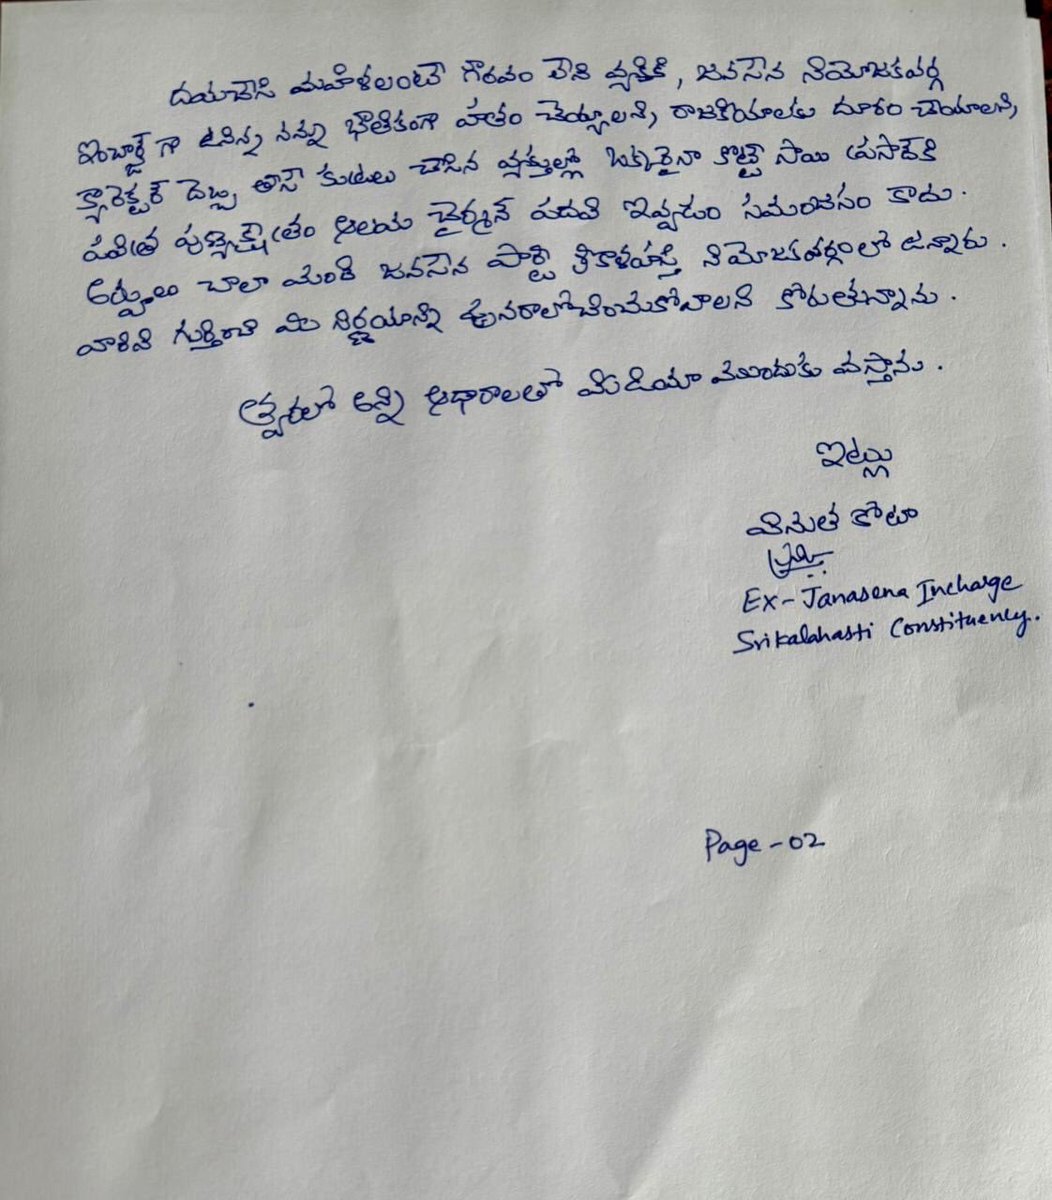 దయచేసి మహిళలంటే గౌరవం లేని వ్యక్తికి, జనసేన నియోజకవర్గ
ఇంచార్జ్ గా ఉనిన్న నన్ను భౌతికంగా హతం చేయ్యాలని, రాజకీయాలకు దూరం చేయాలని,
క్యారెక్టర్ దెబ్బ తీసే కుట్రలు చేసిన వ్యక్తుల్లో ఒక్కరైనా కొట్టే సాయి ప్రసాద్‌కి
పవిత్ర పుణ్యక్షేత్రం ఆలయ చైర్మన్ పదవి ఇవ్వడం సమంజసం కాదు.
అర్హులు చాలా మంది జనసేన పార్టీ శ్రీకాళహస్తి నియోజకవర్గంలో ఉన్నారు.
వారిని గుర్తించి మీ నిర్ణయాన్ని పునరాలోచించుకోవాలని కోరుతున్నాను.
త్వరలో అన్ని ఆధారాలతో మీడియా ముందుకు వస్తాను.
ఇట్లు
వినుత కోటా
Ex-Janasena Incharge
Srikalahasti Constituency.
Page-02